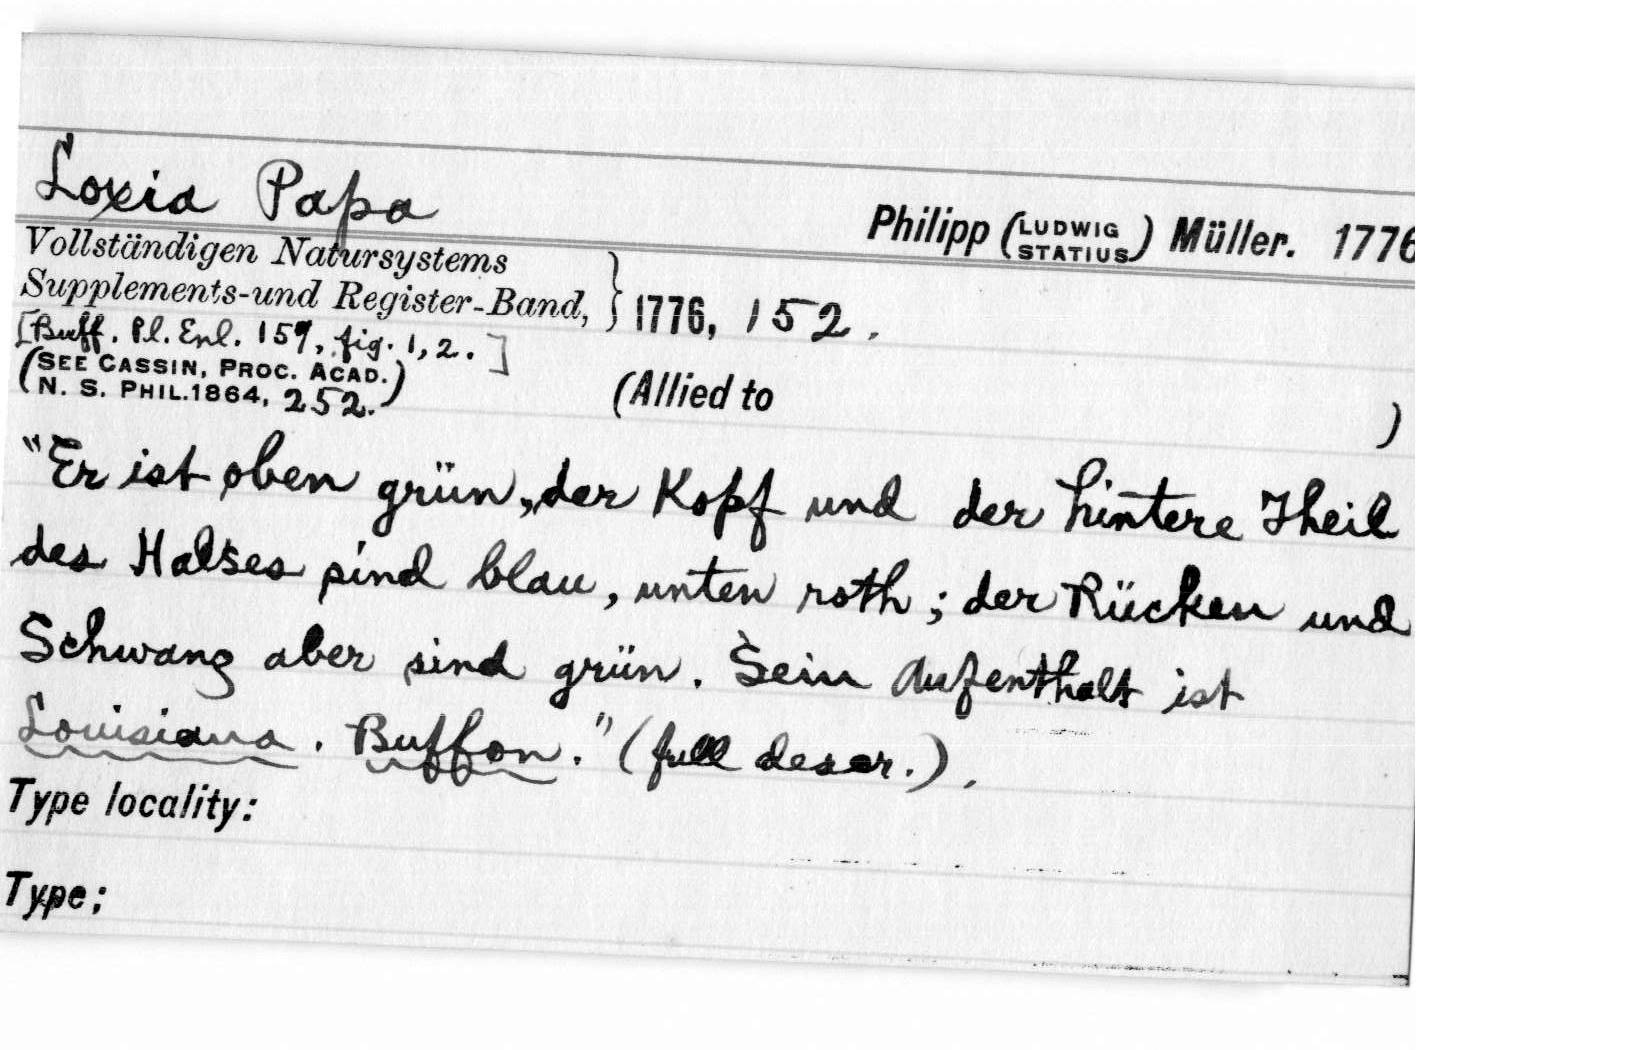 Loxia Papa
Philipp (LUDWIG STATIUS) Müller. 1776
Vollständigen Natursystems
Supplements-und Register-Band, } 1776, 152.
[Buff. Pl. Enl. 159, fig. 1, 2.]
(SEE CASSIN, PROC. ACAD.
N. S. PHIL. 1864, 252.)
(Allied to )
"Er ist oben grün, der Kopf und der hintere Theil
des Halses sind blau, unten roth; der Rücken und
Schwanz aber sind grün. Sein Aufenthalt ist
Louisiana. Buffon." (full descr.).
Type locality:
Type;